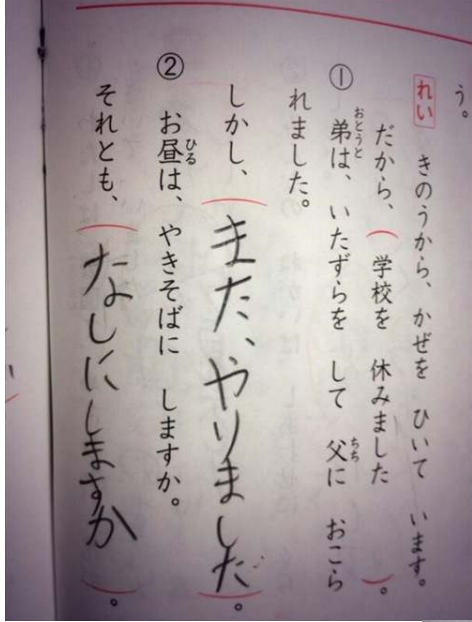 う。
れい きのうから、かぜを ひいて います。
だから、(学校を 休みました)。
① 弟は、いたずらを して 父に おこら
れました。
しかし、(また、やりました)。
② お昼は、やきそばに しますか。
それとも、(なしにしますか)。